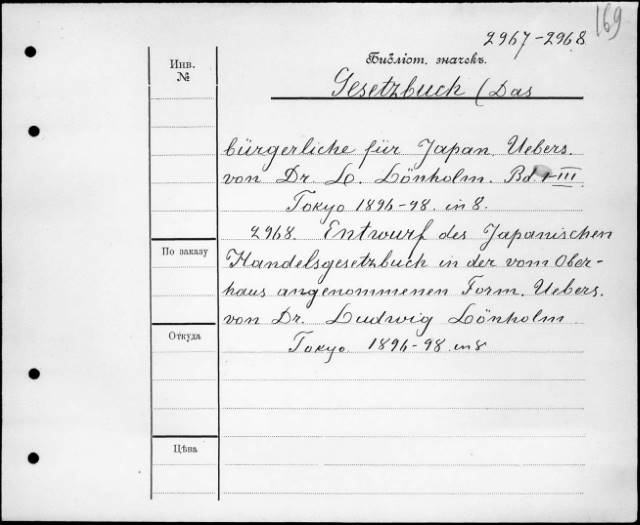 169
2967-2968
Инв.
№
Библіот. значекъ.
Gesetzbuch (Das
bürgerliche für Japan. Uebers.
von Dr. L. Lönholm. Bd. I-III.
Tokyo 1896-98. in 8.
2968. Entwurf des Japanischen
По заказу
Handelsgesetzbuch in der vom Ober-
haus angenommenen Form. Uebers.
von Dr. Ludwig Lönholm
Откуда
Tokyo 1896-98. in 8
Цѣна